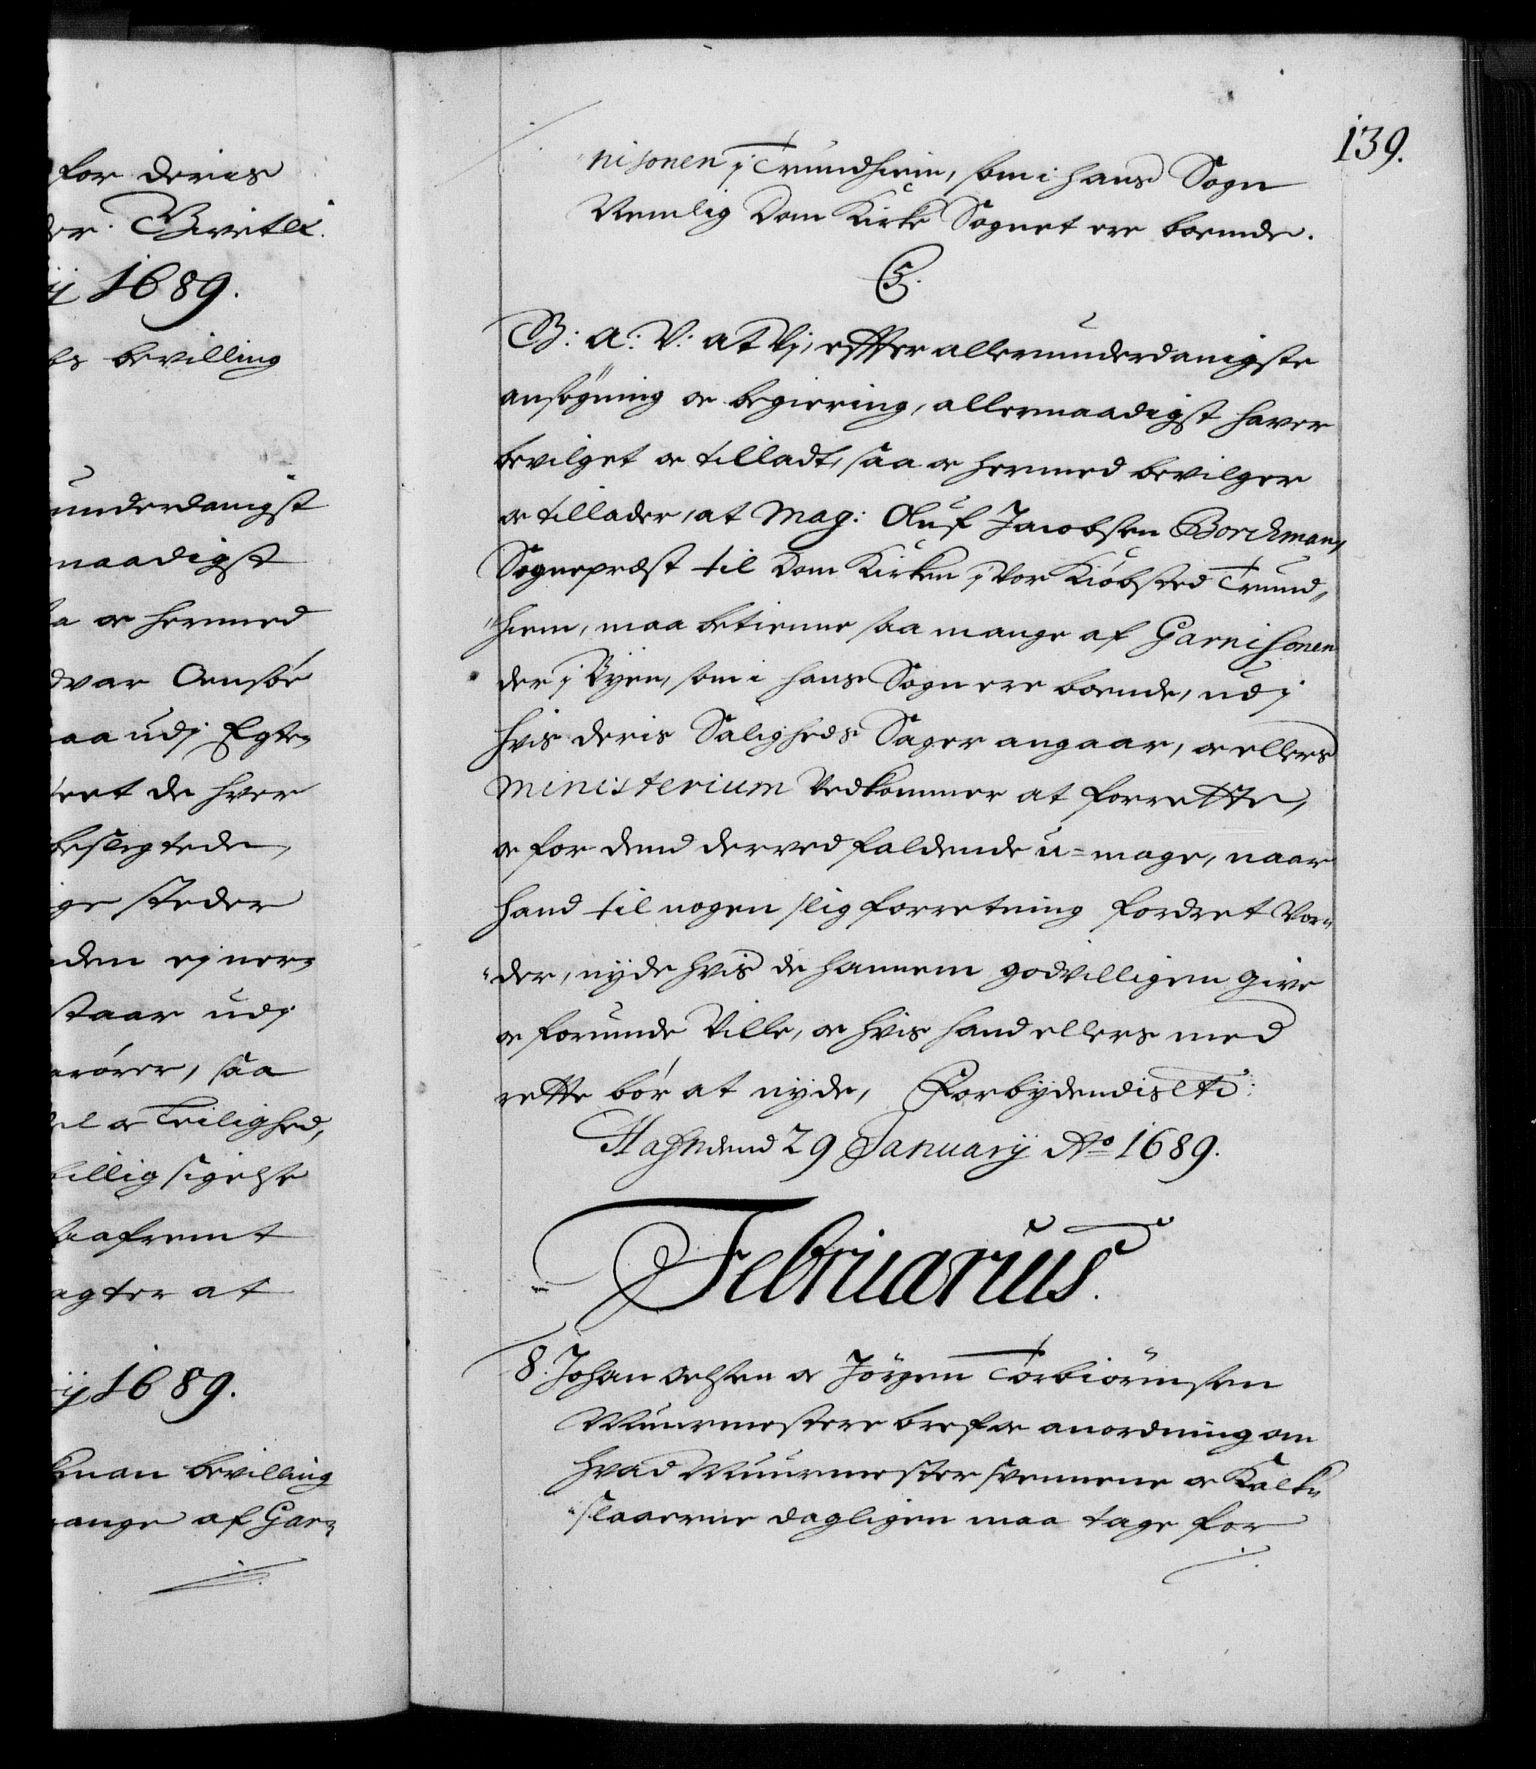 for deris
1689.
bevilling
underdanigst
naadigst
a oc hermed
aa udj Egte,
ent de hver
beslegtede,
ge steder
den ej ner,
staar udj
rörer, saa
el oc Leilighed,
billig sigelse
agter at
ij 1689.
kman bevilling
ange af Gar,,
139.
nisonen j Trundhiem, som i hans Sogn
Nemlig Dom Kirke Sognet ere boende.
C5.
G: A: V: at Vj, effter allerunderdanigste
ansögning oc begiering, allernaadigst haver
bevilget oc tilladt, saa oc hermed bevilger
oc tillader, at Mag: Oluf Jacobsen Borckman,
Sognepræst til Dom Kirken j Vor Kiöbsted Trund,,
,,hiem, maa betienne saa mange af Garnisonen
der j Byen, som i hans Sogn ere boende, udj
hvis deris Saligheds Sager angaar, oc ellers
Ministerium Vedkommer at forrette,
oc for dend derved faldende u=mage, naar
hand til nogen slig forretning fordret Vor,,
,,der, nyde hvis de hannem godvilligen give
oc forunde Ville, oc hvis hand ellers med
rette bör at nyde, Forbydendis etc:
Hafn dend 29 January Ao 1689.
Februarius.
8. Johan Oelsen oc Jörgen Torbiörnsen
Muurmestere bref oc anordning om
hvad Muurmestersvennene oc Kalk,,
,,slaaerne dagligen maa tage for